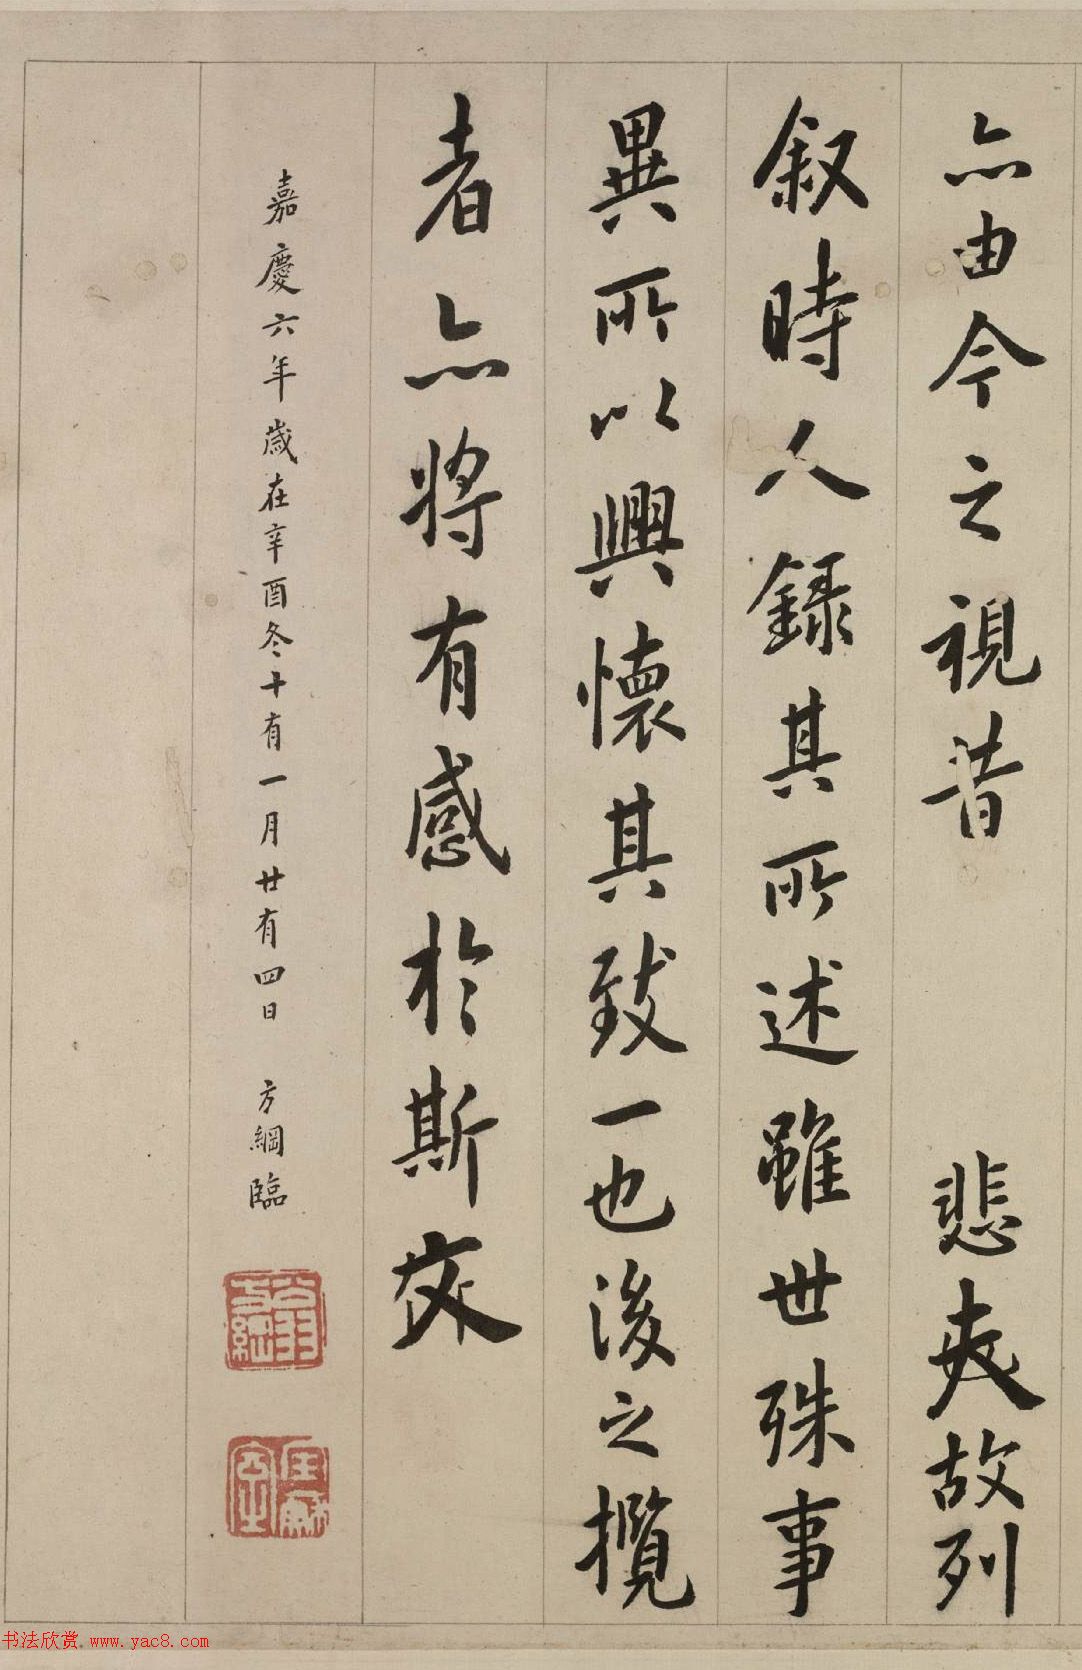 亦由今之視昔 悲夫故列
叙時人錄其所述雖世殊事
異所以興懷其致一也後之攬
者亦將有感於斯文
嘉慶六年歲在辛酉冬十有一月廿有四日 方綱臨
翁方綱
書法欣賞 www.yac8.com